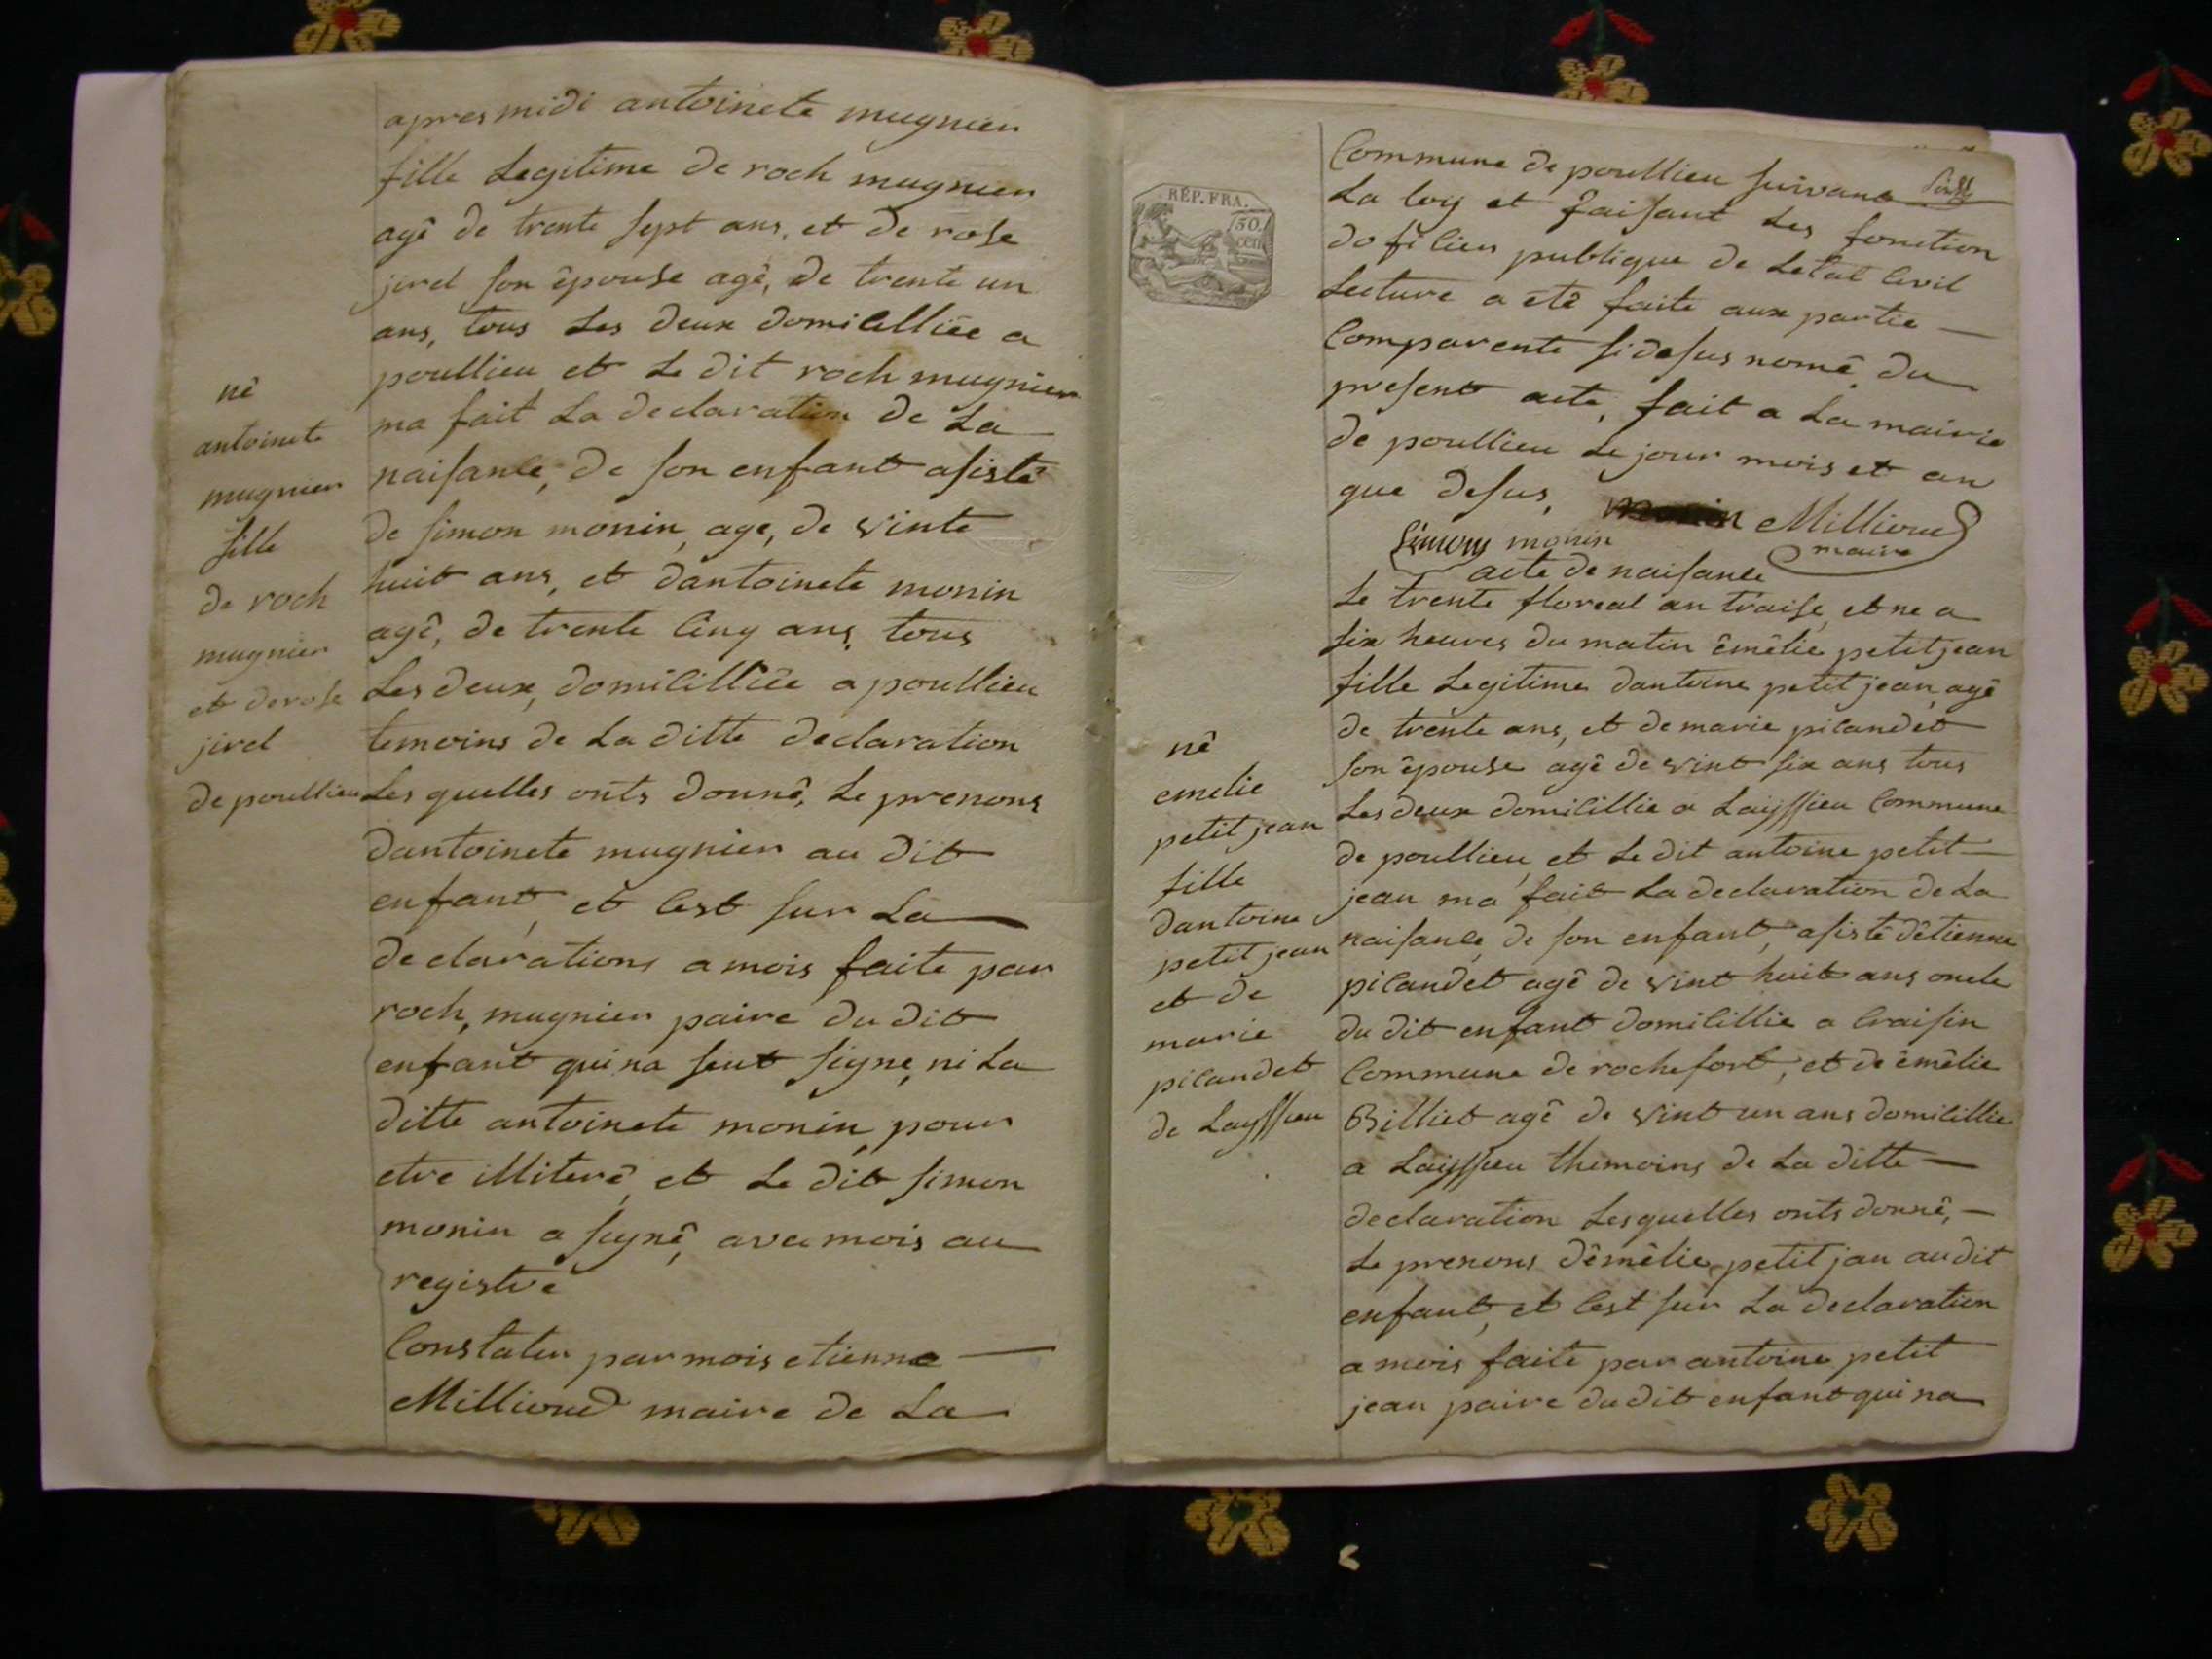 apres midi antoinete mugnier
fille Legitime de roch mugnier
agê de trente sept ans, et de rose
jirel son êpouse agê, de trente un
ans, tous Les deux domicilliêe a
poullieu et Le dit roch mugnier
ma fait La declaration de La
naisance, de son enfant asistê
de simon monin, age, de vinte
huit ans, et dantoinete monin
agê, de trente cinq ans, tous
Les deux, domicilliêe a poullieu
temoins de La ditte declaration
Les quelles onts donnê, Le prenons
dantoinete mugnier au dit
enfant, et cest sur La
declarations a mois faite par
roch, mugnier paire du dit
enfant qui na seut signe, ni La
ditte antoinete monin, pour
etre illiterê, et Le dit simon
monin a signê, avec mois au
registre
Constater par mois etienne
Millioud maire de La
nê
antoinete
mugnier
fille
de roch
mugnier
et de rose
jirel
de poullieu
RÉP. FRA.
50.
CEN
Commune de poullieu suivans
La loy et faisant Les fonction
dofficier publique de Letat Civil
Lecture a etê faite aux partie
Comparente si desus nomê, du
present acte, fait a La mairie
de poullieu Le jour mois et an
que desus, Millioud
Simon monin maire
acte de naisance
Le trente floreal an traise, et ne a
six heures du matin êmêlie petit jean
fille Legitime dantoine petit jean, agê
de trente ans, et de marie picandet
son êpouse agê de vint six ans tous
Les deux domicillie a Laissieu Commune
de poullieu, et Le dit antoine petit
jean ma fait La declaration de La
naisance, de son enfant, asistê dêtienne
picandet agê de vint huit ans oncle
du dit enfant domicillie a Craisin
Commune de rochefort, et de êmêlie
Billiet agê de vint un ans domicillie
a Laissieu themoins de La ditte
declaration Lesquelles onts donnê,
Le prenons dêmêlie petit jan au dit
enfant, et cest sur La declaration
a mois faite par antoine petit
jean paire du dit enfant qui na
nê
emelie
petit jean
fille
dantoine
petit jean
et de
marie
picandet
de Layssieu